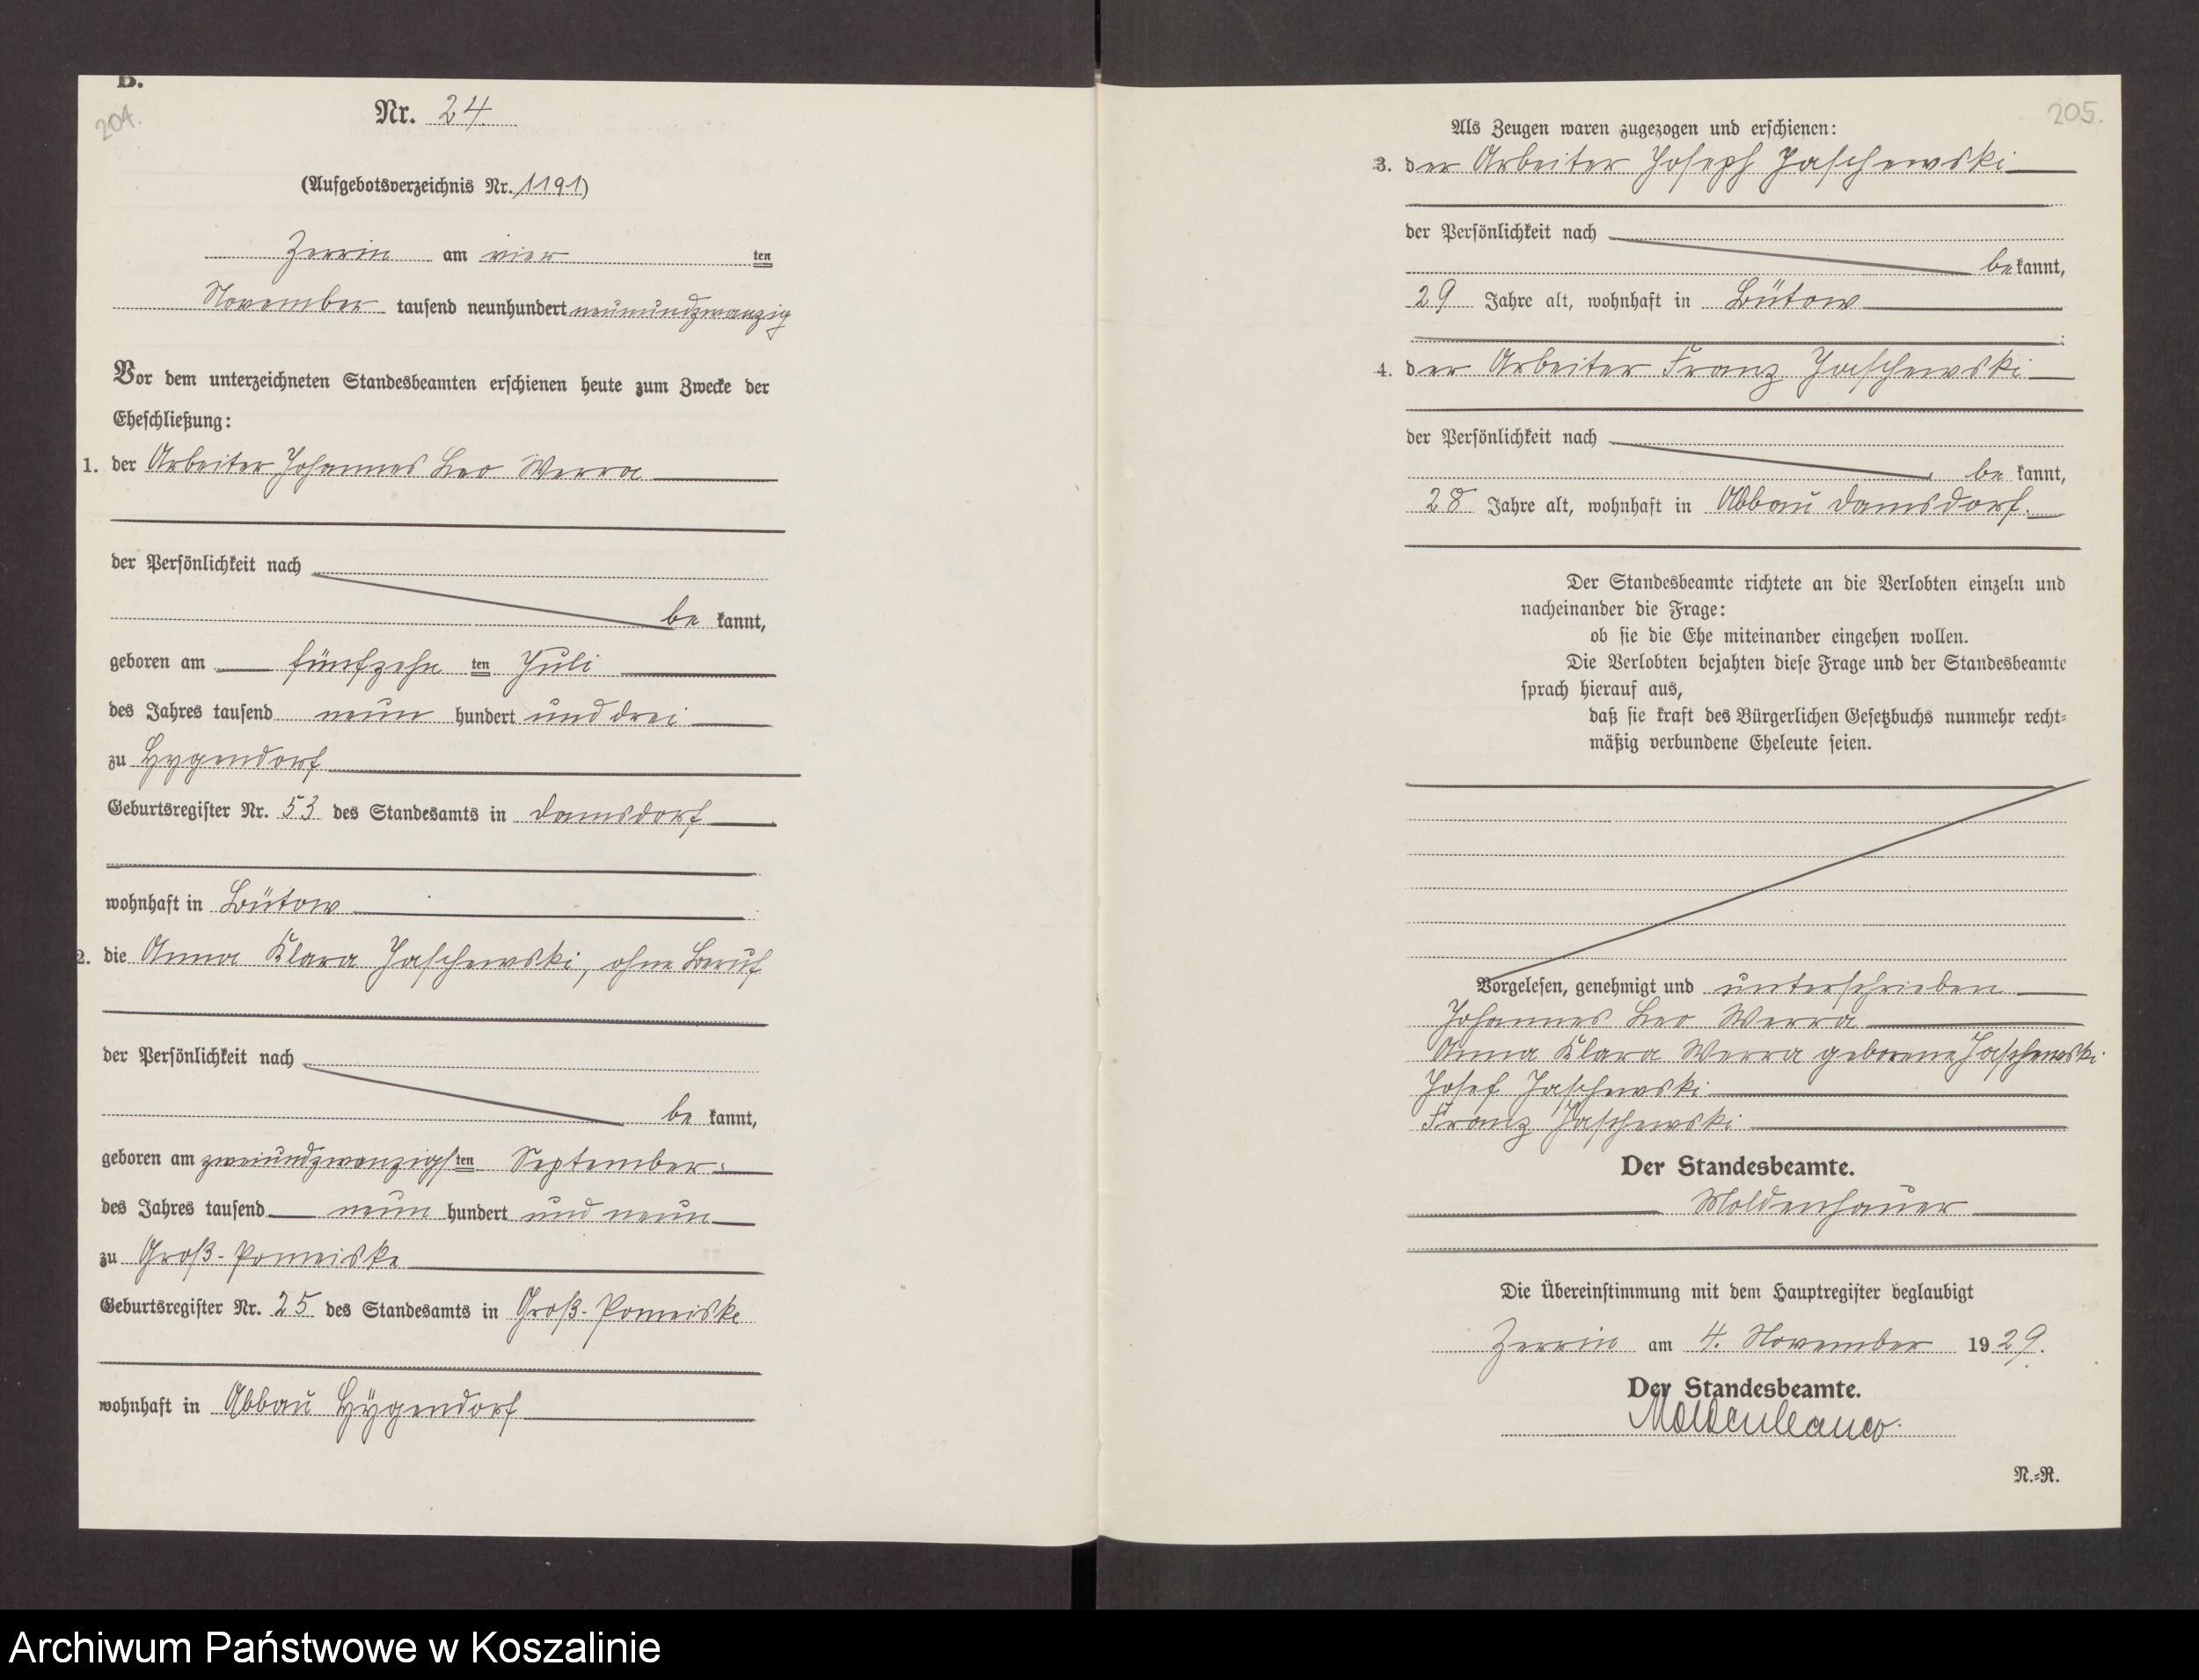 B.
204.
Nr. 24.
(Aufgebotsverzeichnis Nr. 1191)
Zerrin am vier ten
November tausend neunhundert neunundzwanzig
Vor dem unterzeichneten Standesbeamten erschienen heute zum Zwecke der
Eheschließung:
1. der Arbeiter Johannes Leo Werra
der Persönlichkeit nach
be kannt,
geboren am fünfzehn ten Juli
des Jahres tausend neun hundert und drei
zu Hygendorf
Geburtsregister Nr. 53 des Standesamts in Damsdorf
wohnhaft in Bütow
2. die Anna Klara Jaschewski, ohne Beruf
der Persönlichkeit nach
be kannt,
geboren am zweiundzwanzigsten September
des Jahres tausend neun hundert und neun
zu Groß-Pomeiske
Geburtsregister Nr. 25 des Standesamts in Groß-Pomeiske
wohnhaft in Abbau Hÿgendorf
205.
Als Zeugen waren zugezogen und erschienen:
3. der Arbeiter Joseph Jaschewski
der Persönlichkeit nach
be kannt,
29 Jahre alt, wohnhaft in Bütow
4. der Arbeiter Franz Jaschewski
der Persönlichkeit nach
be kannt,
28 Jahre alt, wohnhaft in Abbau Damsdorf.
Der Standesbeamte richtete an die Verlobten einzeln und
nacheinander die Frage:
ob sie die Ehe miteinander eingehen wollen.
Die Verlobten bejahten diese Frage und der Standesbeamte
sprach hierauf aus,
daß sie kraft des Bürgerlichen Gesetzbuchs nunmehr recht-
mäßig verbundene Eheleute seien.
Vorgelesen, genehmigt und unterschrieben
Johannes Leo Werra
Anna Klara Werra geborene Jaschewski.
Josef Jaschewski
Franz Jaschewski
Der Standesbeamte.
Moldenhauer
Die Übereinstimmung mit dem Hauptregister beglaubigt
Zerrin am 4. November 1929.
Der Standesbeamte.
Moldenhauer.
N.-R.
Archiwum Państwowe w Koszalinie